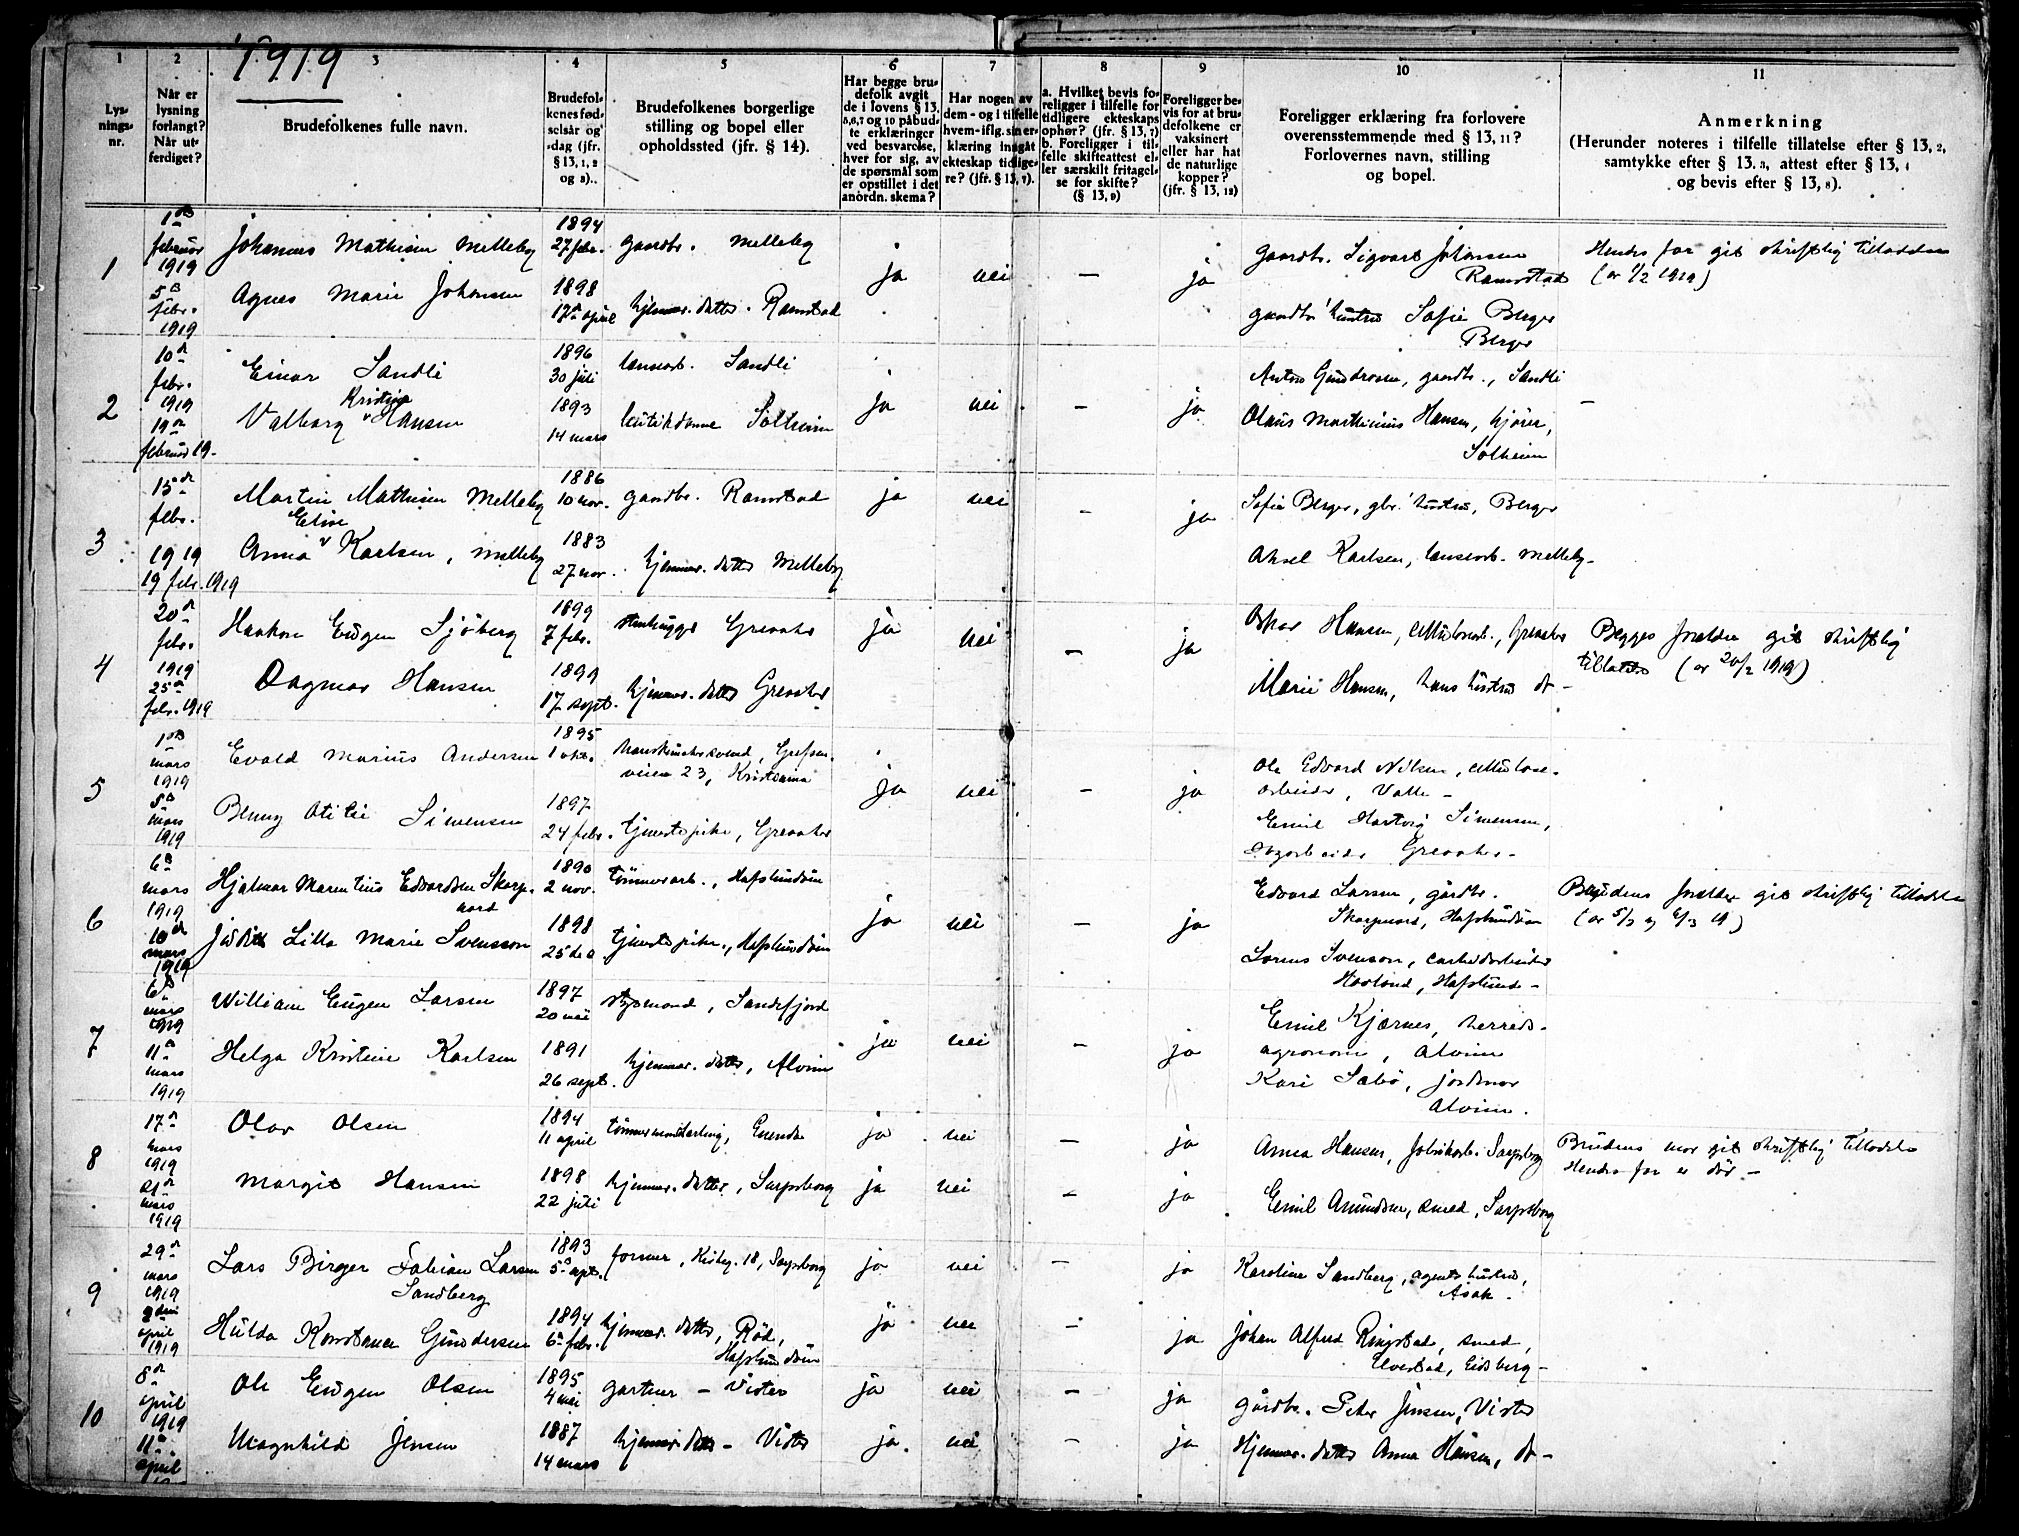 1919
1
2
3
4
5
6
7
8
9
10
11
Lys-
nings-
nr.
Når er
lysning
forlangt?
Når ut-
ferdiget?
Brudefolkenes fulle navn.
Brudefol-
kenes fød-
selsår og
-dag (jfr.
§ 13, 1, 2
og 3).
Brudefolkenes borgerlige
stilling og bopel eller
opholdssted (jfr. § 14).
Har begge bru-
defolk avgit
de i lovens § 13,
5,6,7 og 10 påbud-
te erklæringer
ved besvarelse,
hver for sig, av
de spørsmål som
er opstillet i det
anordn. skema?
Har nogen av
dem - og i tilfelle
hvem - iflg. sin er-
klæring inngåt
ekteskap tidlige-
re? (jfr. § 13, 7).
a. Hvilket bevis fo-
religger i tilfelle for
tidligere ekteskaps
ophør? (jfr. § 13, 7)
b. Foreligger i til-
felle skifteattest el-
ler særskilt fritagel-
se for skifte?
(§ 13, 9)
Foreligger be-
vis for at bru-
defolkene er
vaksinert
eller har hat
de naturlige
kopper?
(jfr. § 13, 12)
Foreligger erklæring fra forlovere
overensstemmende med § 13, 11?
Forlovernes navn, stilling
og bopel.
Anmerkning
(Herunder noteres i tilfelle tillatelse efter § 13, 2,
samtykke efter § 13, 3, attest efter § 13, 4
og bevis efter § 13, 8).
1
februar
1919
5
febr.
1919
Johannes Mathisen Melleby
1894
27 febr.
gaardbr. Melleby
Agnes Marie Johansen
1898
17 april
hjemmev. datter. Ramstad
ja
nei
–
ja
gaardbr. Sigvart Johansen
Ramstad
gaardbr hustru Sofie Berger
Berger
Hendes far git skriftlig tilladelse
(av 1/2 1919)
2
10
febr.
1919
19
februar 19
Einar Sandli
1896
30 juli
Sandli
Kristine
Valborg v Hansen
1893
14 mars
butikdame Solheim
ja
nei
–
ja
Anton Gundersen, gaardbr., Sandli
Olaus Marthinius Hansen, kjører,
Solheim
–
3
15
febr.
1919
19 febr. 1919
Martin Mathisen Melleby
1886
10 nov.
gaardbr. Ramstad
Elise
Anna v Karlsen, Melleby
1883
27 nov.
hjemmev. datter Melleby
ja
nei
–
ja
Sofie Berger, gbr. hustru, Berger
Aksel Karlsen, Melleby
4
20
febr.
1919
25
febr. 1919
Haakon Eugen Sjöberg
1899
7 febr.
stenhugger Greaaker
Dagmar Hansen
1899
17 sept.
hjemmev. datter Greaaker
ja
nei
–
ja
Oskar Hansen, cellulosearb., Greaaker
Marie Hansen, hans hustru do –
Begges forældre git skriftlig
tillatelse (av 20/2 1919)
5
1
mars
1919
5
mars
1919
Evald Marius Andersen
1895
1 okt.
Grefsen-
veien 23, Kristiania
Benny Otilie Simensen
1897
24 febr.
tjenestepike, Greaaker
ja
nei
–
ja
Ole Edvard Nilsen, cellulose-
arbeider, Valle –
Emil Hartvig Simensen,
Greaaker –
6
6
mars
1919
10
mars
1919
Hjalmar Marentius Edvardsen Skarp-
nord
1890
2 nov.
tømmerarb., Hafslundsøen
Judith Lilla Marie Svensson
1898
25 des.
tjenestepike, Hafslundsøen
ja
nei
–
ja
Edvard Larsen, gårdbr.
Skarpnord, Hafslundsøen
Svenson, carbidarbeider
Hafslund –
Brudens forældre git skriftlig tilladelse
(av 5/3 og 6/3 19)
7
6
mars
1919
11
mars
1919
William Eugen Larsen
1897
20 mai
styrmand, Sandefjord
Helga Kristine Karlsen
1891
26 sept.
hjemmev. datter, Alvim
ja
nei
–
ja
Emil Kjærnes, herreds-
agronom, Alvim
Kari Sæbö, jordmor
Alvim.
8
17
mars
1919
21
mars
1919
Olav Olsen
1894
11 april
tømmermand
Margit Hansen
1898
22 juli
hjemmev. datter, Sarpsborg
ja
nei
–
ja
ja
nei
–
ja
Anna Hansen, fabrikarb. Sarpsborg
Emil Amundsen, smed, Sarpsborg
Brudens mor git skriftlig tilladelse
Hendes far er død –
9
29
mars
1919
2den
april
1919
Lars Birger Fabian Larsen
Sandberg
1893
5 sept.
former, 18, Sarpsborg
Hulda Konstanse Gundersen
1894
6 febr.
hjemmev. datter, Rød,
Hafslundsøen
ja
nei
–
ja
ja
nei
–
ja
Karoline Sandberg, agents hustru,
Asak.
Johan Alfred Ringstad, smed,
Elvestad, Eidsberg –
10
8
april
1919
11
april
Ole Eugen Olsen
1895
4 mai
gartner – Vister
Magnhild Jensen
1887
14 mars
hjemmev. datter – Vister
ja
nei
–
ja
ja
nei
–
ja
gårdbr. Peter Jensen, Vister
Hjemmev. datter Anna Hansen, do –